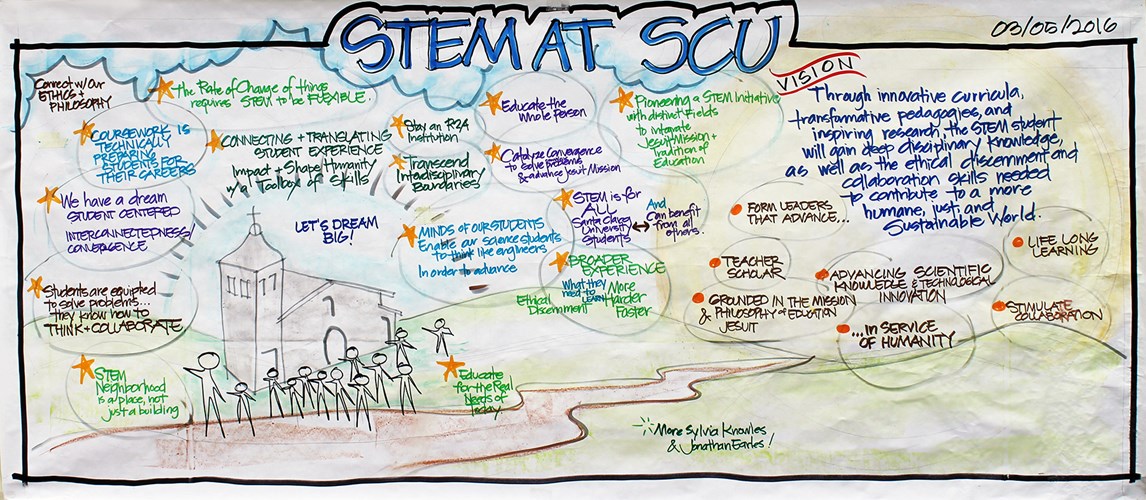 STEM AT SCU
03/05/2016
Connect w/Our
ETHICS +
PHILOSOPHY
The Rate of Change of things
requires STEM to be FLEXIBLE.
COURSEWORK IS
TECHNICALLY
PREPARING
STUDENTS FOR
THEIR CAREERS
CONNECTING + TRANSLATING
STUDENT EXPERIENCE
Impact + Shape Humanity
w/a Toolbox of Skills
Stay an R2A
Institution
Transcend
Interdisciplinary
Boundaries
Educate the
Whole Person
Catalyze Convergence
to solve problems
& advance Jesuit Mission
Pioneering a STEM Initiative
with distinct Fields
to integrate
Jesuit Mission +
Tradition of
Education
We have a dream
STUDENT CENTERED
INTERCONNECTEDNESS/
CONVERGENCE
LET'S DREAM
BIG!
MINDS OF OUR STUDENTS
Enable our science students
to think like engineers
In order to advance
STEM is for
ALL
Santa Clara
University
Students
And
Can benefit
from all
others.
BROADER
EXPERIENCE
What they
need to LEARN
More
Harder
Faster
Ethical
Discernment
Students are equipped
to solve problems...
they know how to
THINK + COLLABORATE
STEM
Neighborhood
is a place, not
just a building
Educate
for the Real
Needs of
Today
More Sylvia Knowles
& Jonathan Earles!
VISION
Through innovative curricula,
transformative pedagogies, and
inspiring research, the STEM student
will gain deep disciplinary knowledge,
as well as the ethical discernment and
collaboration skills needed
to contribute to a more
humane, just, and
Sustainable World.
FORM LEADERS
THAT ADVANCE...
LIFE LONG
LEARNING
TEACHER
SCHOLAR
ADVANCING SCIENTIFIC
KNOWLEDGE & TECHNOLOGICAL
INNOVATION
GROUNDED IN THE MISSION
& PHILOSOPHY OF EDUCATION
JESUIT
STIMULATE
COLLABORATION
...IN SERVICE
OF HUMANITY